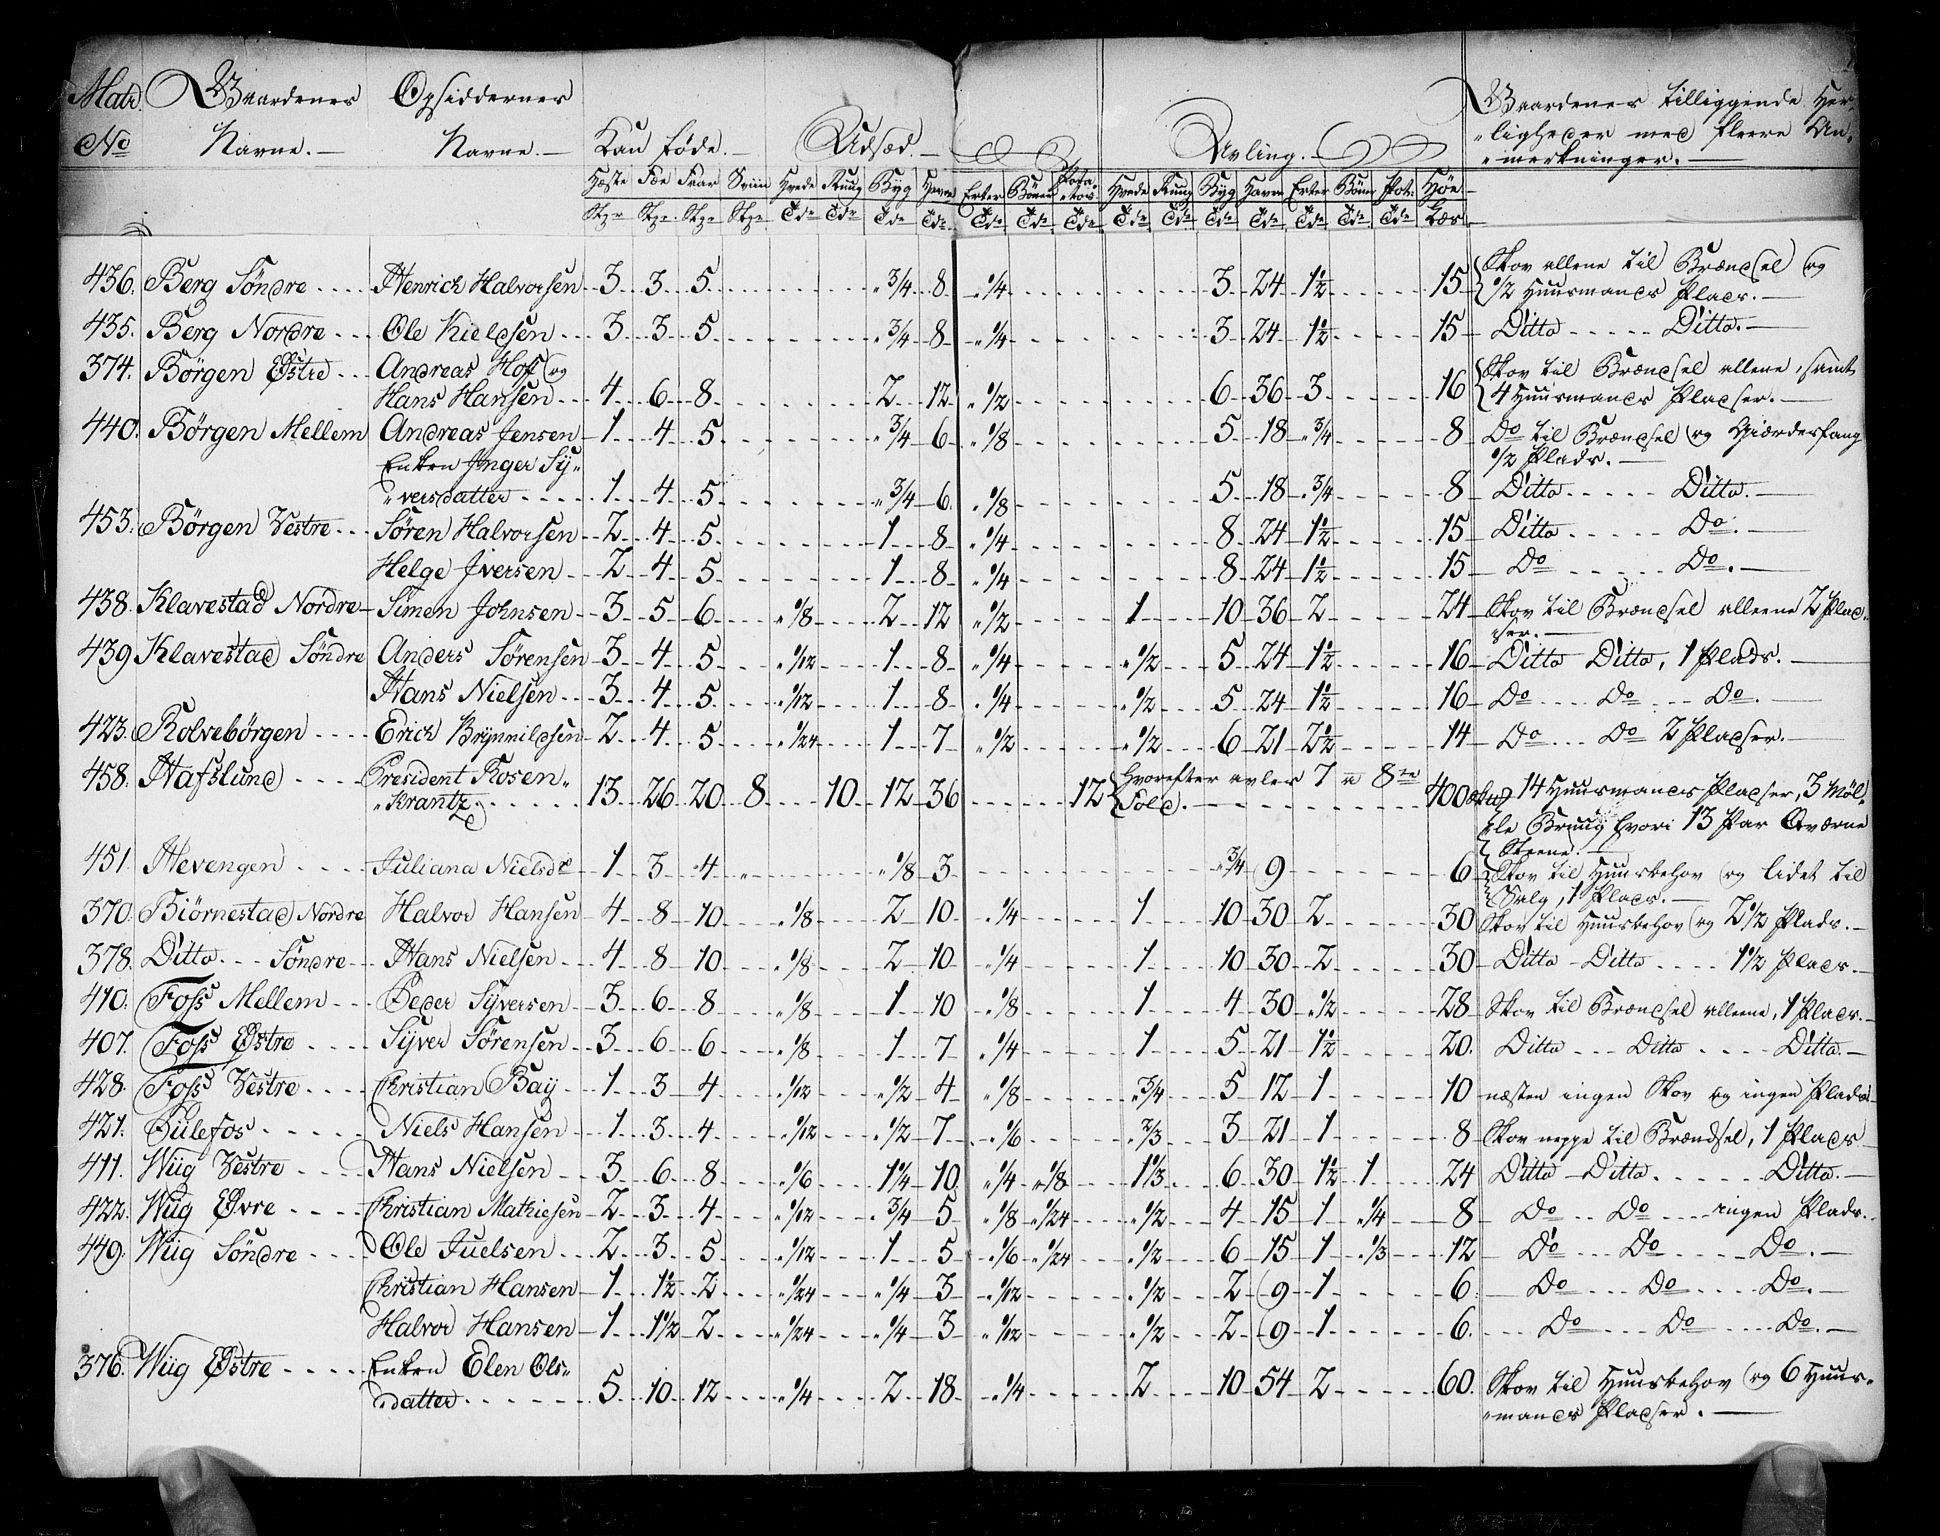 Matr. Gaardenes Opsiddernes Gaardenes tilliggende Her-
No Navne. Navne. Kan føde. Udsæd. Avling. ligheder med fleere An-
merkninger.
Hæste Fæe Faar Sviin Hvede Ruug Byg Havre Erter Bönner Potatos Hvede Ruug Byg Havre Erter Bönner Pot. Høe
Stk. Stk. Stk. Stk. Tdr Tdr Tdr Tdr Tdr Tdr Tdr Tdr Tdr Tdr Tdr Tdr Tdr Tdr Læs
436. Berg Söndre Henrich Halvorsen 3 3 5 3/4 8 1/4 3 24 1 1/2 15 Skov allene til Brændsel og
1/2 Huusmands Plads.
435. Berg Nordre Ole Kieldsen 3 3 5 3/4 8 1/4 3 24 1 1/2 15 Ditto Ditto.
374. Börgen Østre Andreas Hoff og Skov til Brændsel allene, samt
Hans Hansen 4 6 8 2 12 1/2 6 36 3 16 4 Huusmands Pladser.
440. Börgen Mellem Andreas Jensen 1 4 5 3/4 6 1/8 5 18 3/4 8 Do til Brændsel og Gierdesfang
Enken Inger Sy- 1/2 Plads.
versdatter 1 4 5 3/4 6 1/8 5 18 3/4 8 Ditto Ditto.
453. Börgen Vestre Sören Halvorsen 2 4 5 1 8 1/4 8 24 1 1/2 15 Ditto Do.
Helge Iversen 2 4 5 1 8 1/4 8 24 1 1/2 15 Do Do.
438. Klavestad Nordre Simen Johnsen 3 5 6 1/8 2 12 1/2 1 10 36 2 24 Skov til Brændsel alleene 2 Plad-
ser.
439 Klavestad Söndre Anders Sörensen 3 4 5 1/12 1 8 1/4 1/2 5 24 1 1/2 16 Ditto Ditto, 1 Plads.
Hans Nielsen 3 4 5 1/12 1 8 1/4 1/2 5 24 1 1/2 16 Do Do Do.
423. Rolvebörgen Erich Brynnildsen 2 4 5 1/24 1 7 1/2 1/2 6 21 2 1/2 14 Do Do 2 Pladser.
458. Hafslund President Rosen- Hvorefter avles 7 a 8te
krantz. 13 26 20 8 10 12 36 12 Fold. 400 14 Huusmands Pladser, 3 Möl-
le Bruug hvori 13 Par Qværne
Steene.
451. Hevengen Juliana Nielsdr 1 3 4 1/8 3 3/4 9 6 Skov til Huusbehov og lidet til
Salg, 1 Plads.
370. Biörnestad Nordre Halvor Hansen 4 8 10 1/8 2 10 1/4 1 10 30 2 30 Skov til Huusbehov og 2 1/2 Plads.
378. Ditto Söndre Hans Nielsen 4 8 10 1/8 2 10 1/4 1 10 30 2 30 Ditto Ditto 1 1/2 Plads.
410. Foss Mellem Peder Syversen 3 6 8 1/8 1 10 1/8 1 4 30 1/2 28 Skov til Brændsel alleene, 1 Plads.
407. Foss Østre Syver Sörensen 3 6 6 1/8 1 7 1/4 1 5 21 1 1/2 20. Ditto Ditto Ditto.
428. Foss Vestre Christian Bay 1 3 4 1/12 1/2 4 1/8 3/4 5 12 1 10 næsten ingen Skov og ingen Plads
421. Pulefos Niels Hansen 1 3 4 1/12 1/2 7 1/6 2/3 3 21 1 8 Skov neppe til Brændsel, 1 Plads
411. Wiig Vestre Hans Nielsen 3 6 8 1/6 1 1/4 10 1/4 1/8 1 1/3 6 30 1 1/2 1 24 Ditto Ditto Ditto.
422. Wiig Øvre Christian Mathiesen 2 3 4 1/12 3/4 5 1/8 1/24 1/2 4 15 1 1/4 8 Do Do ingen Plads.
449. Wiig Söndre Ole Juelsen 2 3 5 1/12 1 5 1/6 1/24 1/2 6 15 1 1/3 12 Do Do Do.
Christian Hansen 1 1 1/2 2 1/24 1/4 3 1/12 1/2 2 9 1 6. Do Do Do.
Halvor Hansen 1 1 1/2 2 1/24 1/4 3 1/12 1/2 2 9 1 6. Do Do Do.
376. Wiig Østre Enken Elen Ols-
datter 5 10 12 1/4 2 18 1/4 2 10 54 2 60. Skov til Huusbehov og 6 Huus-
mands Pladser.